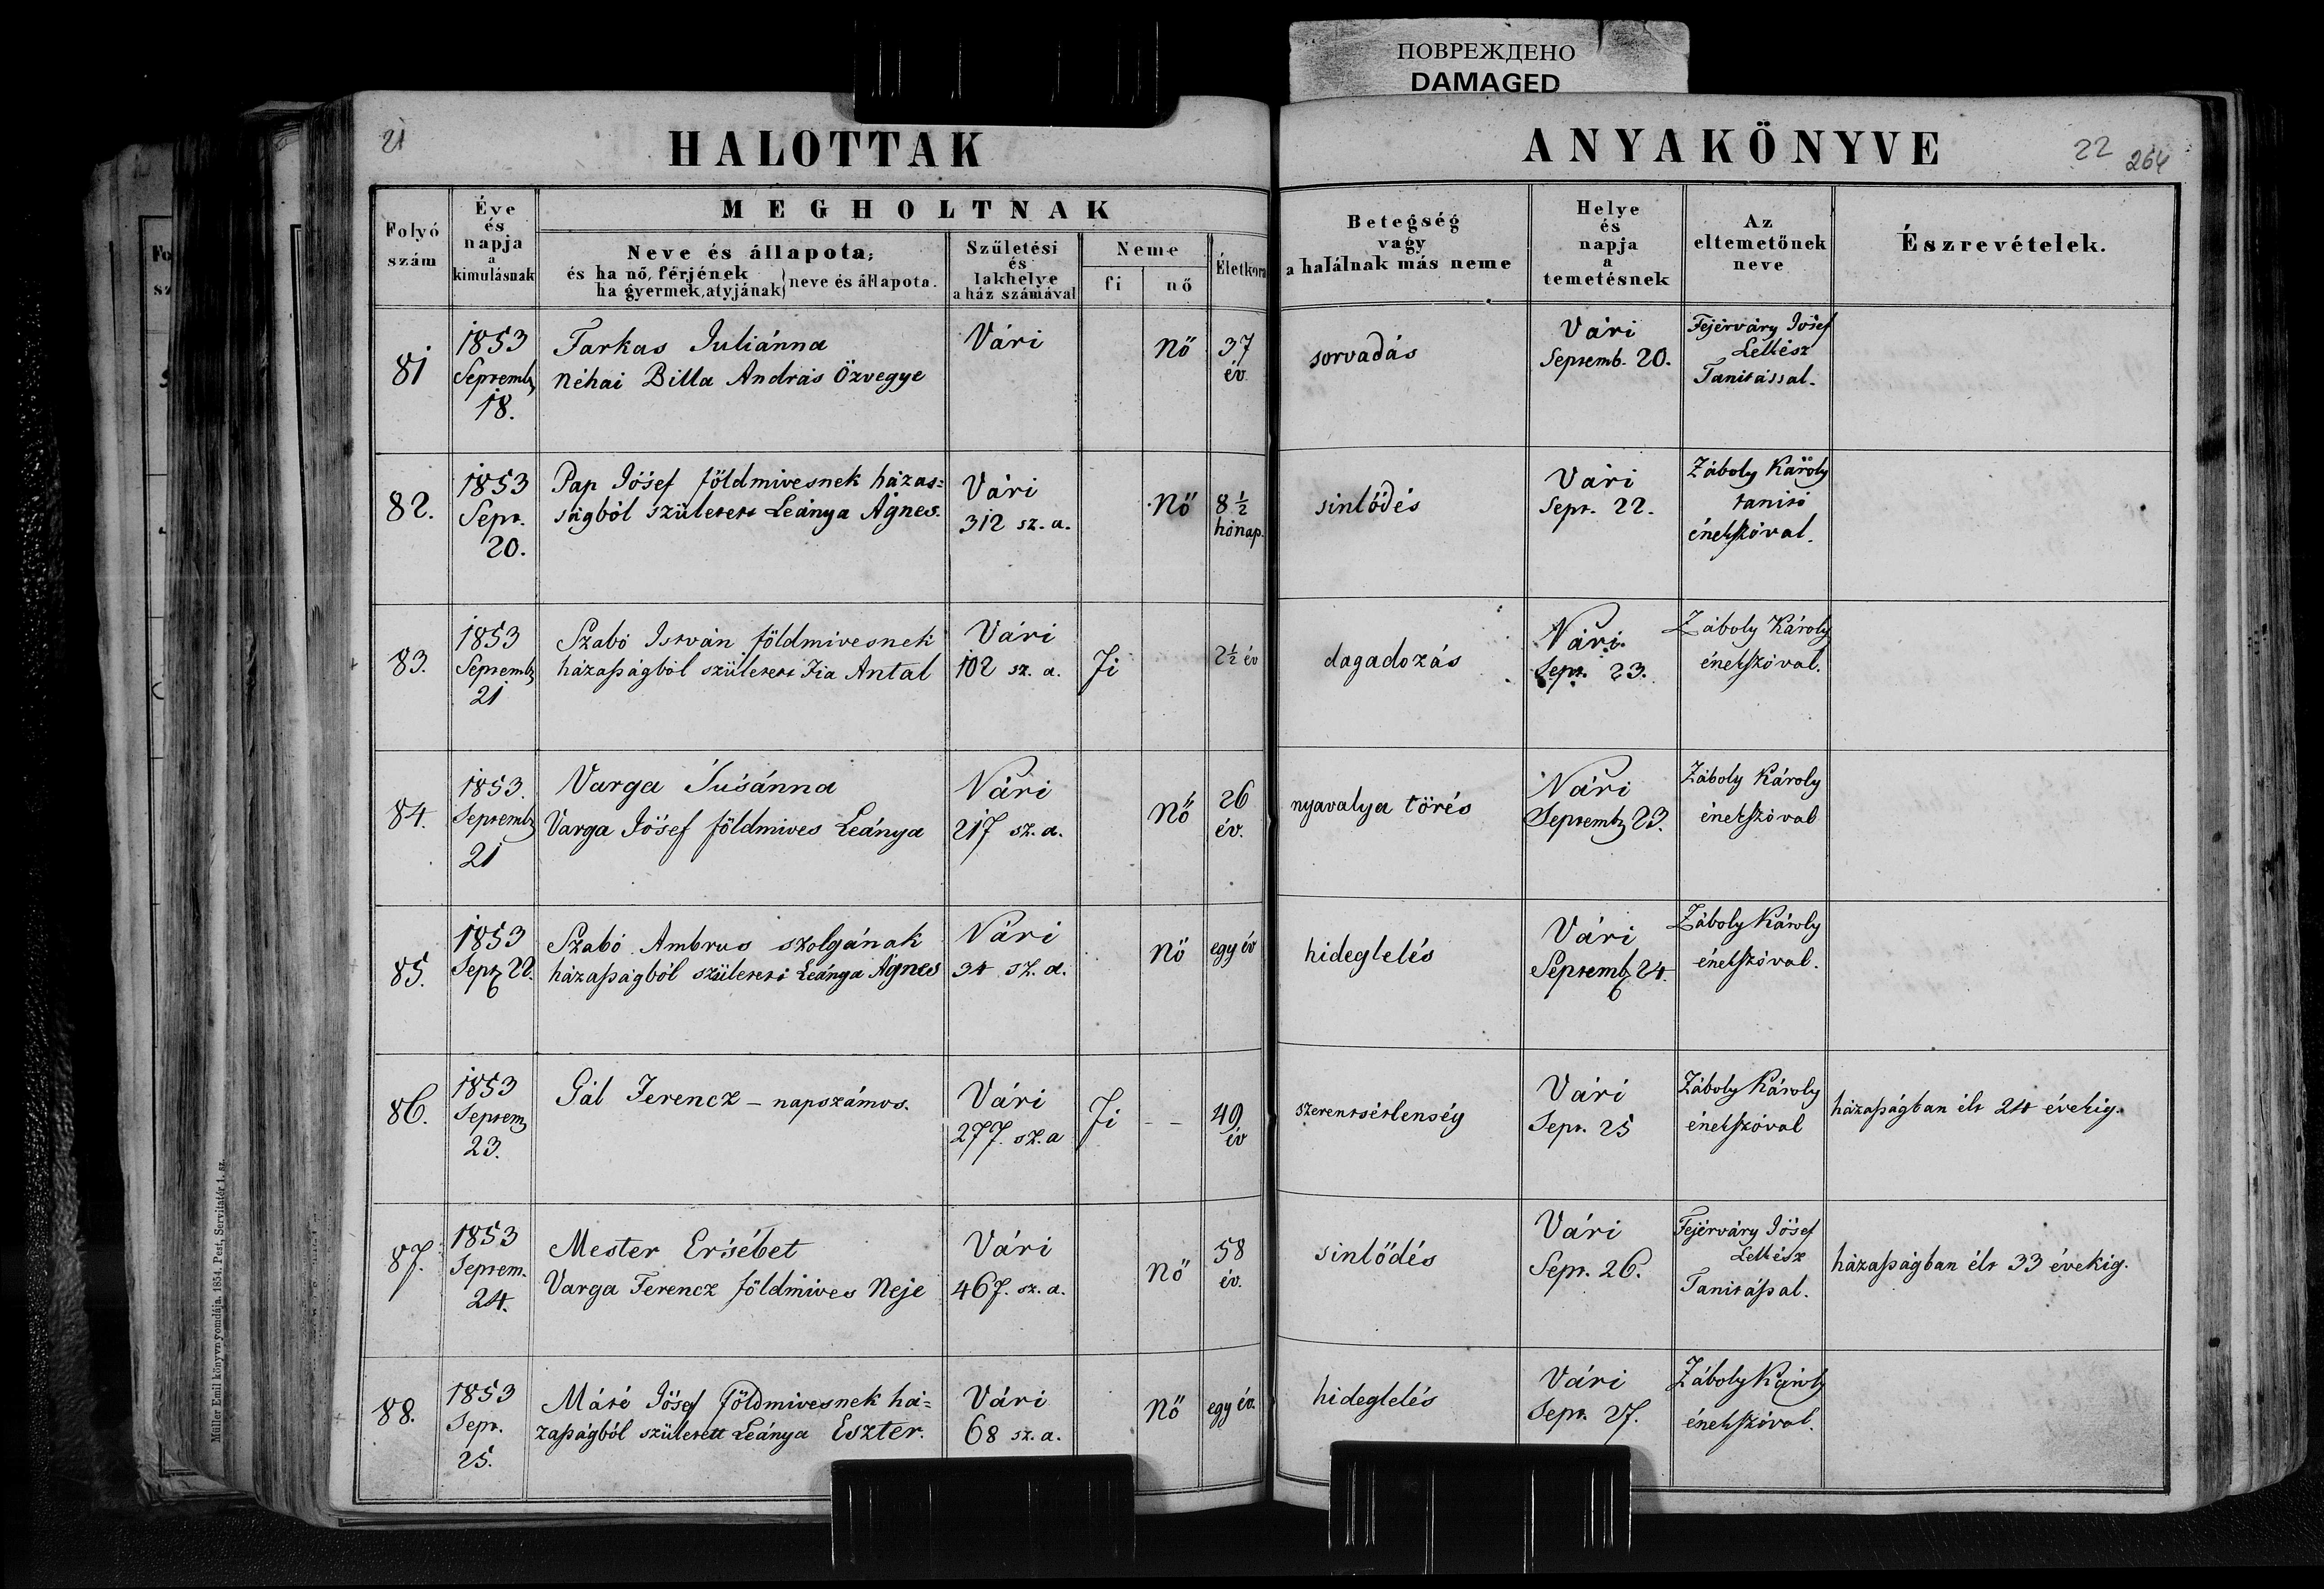 ПОВРЕЖДЕНО
DAMAGED
21
HALOTTAK
ANYAKÖNYVE
22
264
Folyó
szám
Éve
és
napja
a
kimulásnak
MEGHOLTNAK
Neve és állapota,
és ha nő, férjének
ha gyermek, atyjának} neve és állapota.
Születési
és
lakhelye
a ház számával
Neme
fi
nő
Életkora
Betegség
vagy
a halálnak más neme
Helye
és
napja
a
temetésnek
Az
eltemetőnek
neve
Észrevételek.
81
1853
Septemb
18.
Farkas Juliánna
néhai Billa András Özvegye
Vári
Nő
37
év.
sorvadás
Vári
Septemb. 20.
Fejérváry Jósef
Lelkész
Tanitással.
82.
1853
Sept.
20.
Pap Jósef földmivesnek házas=
ságból született Leánya Ágnes.
Vári
312 sz. a.
Nő
8 ½
hónap.
sinlődés
Vári
Sept. 22.
Záboly Károly
tanitó
énekszóval.
83.
1853
Septemb
21
Szabó István földmivesnek
házasságból született Fia Antal
Vári
102 sz. a.
Fi
2½ év
dagadozás
Vári
Sept. 23.
Záboly Károly
énekszóval.
84.
1853.
Septemb
21
Varga Susánna
Varga Jósef földmives Leánya
Vári
217 sz. a.
Nő
26
év.
nyavalya törés
Vári
Septemb 23.
Záboly Károly
énekszóval
85.
1853
Sept 22.
Szabó Ambrus szolgának
házasságból született Leánya Ágnes
Vári
34 sz. a.
Nő
egy év
hideglelés
Vári
Septemb 24.
Záboly Károly
énekszóval.
86.
1853
Septem
23.
Gál Ferencz – napszámos.
Vári
277. sz. a
Fi
– –
49
év
szerentsétlenség
Vári
Sept. 25
Záboly Károly
énekszóval
házasságban élt 24 évekig.
87.
1853
Septem.
24.
Mester Ersébet
Varga Ferencz földmives Neje
Vári
467. sz. a.
Nő
58
év.
sinlődés
Vári
Sept. 26.
Fejérváry Jósef
Lelkész
Tanitással.
házasságban élt 33 évekig.
88.
1853
Sept.
25.
Máté Jósef földmivesnek há=
zasságból született Leánya Eszter.
Vári
68 sz. a.
Nő
egy év.
hideglelés
Vári
Sept. 27.
Záboly Károly
énekszóval.
Müller Emil könyvnyomdája. 1854. Pest, Servitatér 1. sz.